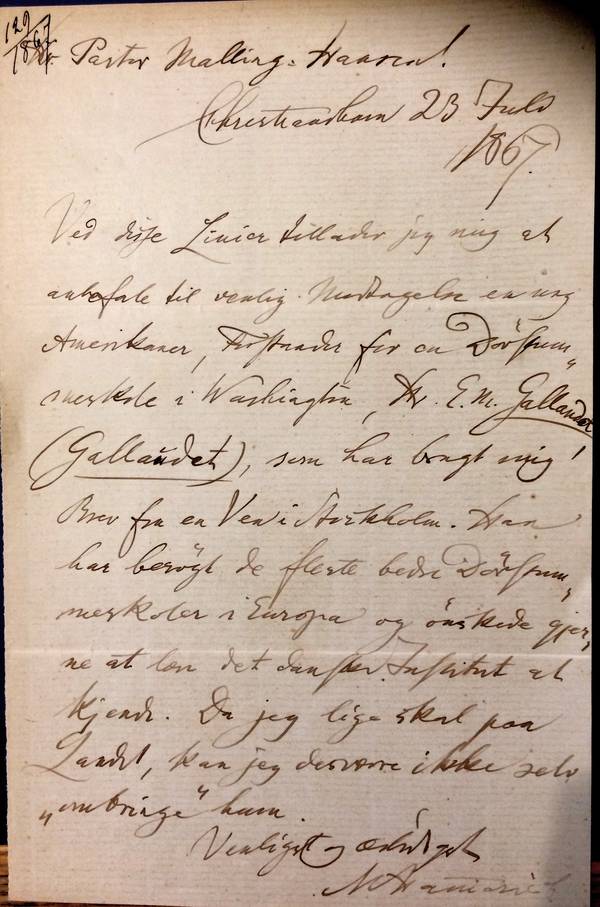 129
1867
Hr Pastor Malling-Hansen!
Christianshavn 23 Juli
1867.
Ved disse Linier tillader jeg mig at
anbefale til venlig Modtagelse en ung
Amerikaner, Forstander for en Døvstum„
meskole i Washington, Hr. E. M. Gallaudet
(Gallaudet), som har bragt mig
Brev fra en Ven i Stockholm. Han
har besögt de fleste bedre Dövstum„
meskoler i Europa og önskede gjer„
ne at lære det danske Institut at
kjende. Da jeg lige skal paa
Landet, kan jeg desværre ikke selv
„ombringe" ham.
Venligst og ærbödigst